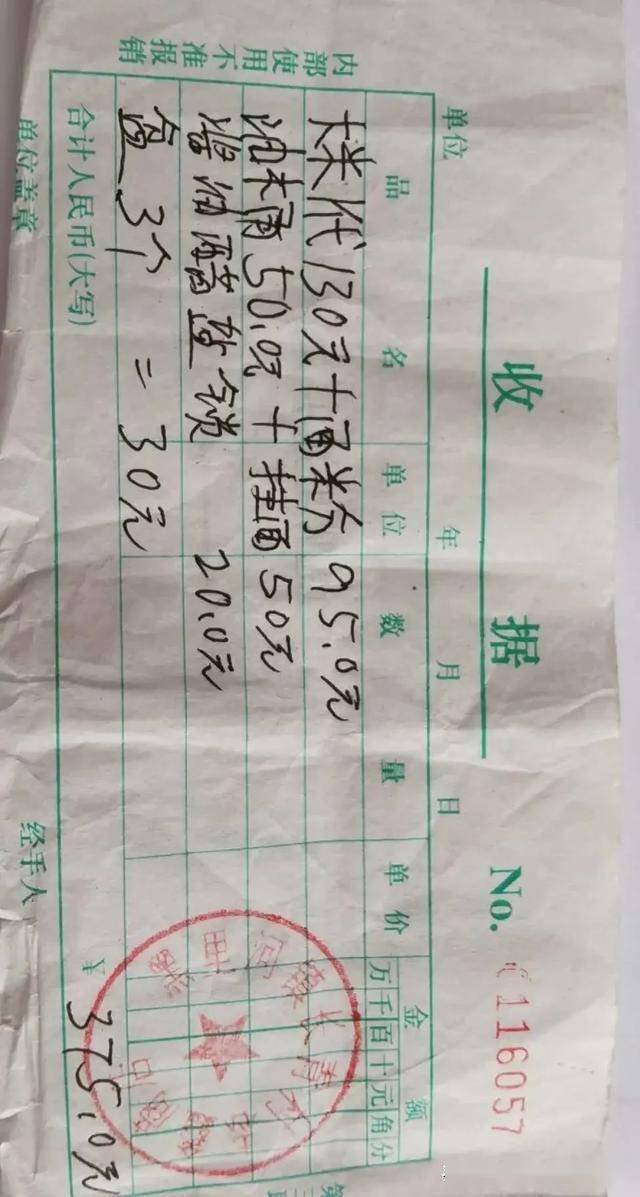 收据
No. 0116057
单位 年 月 日
品名 单位 数量 单价 金额
万千百十元角分
大米代130元十面米分95.0元
油木甬50.0元十挂面50元
酱油醋盐令锅 20.0元
盆3个=30元
合计人民币(大写) ¥ 375.0元
单位盖章 经手人
内部使用不准报销